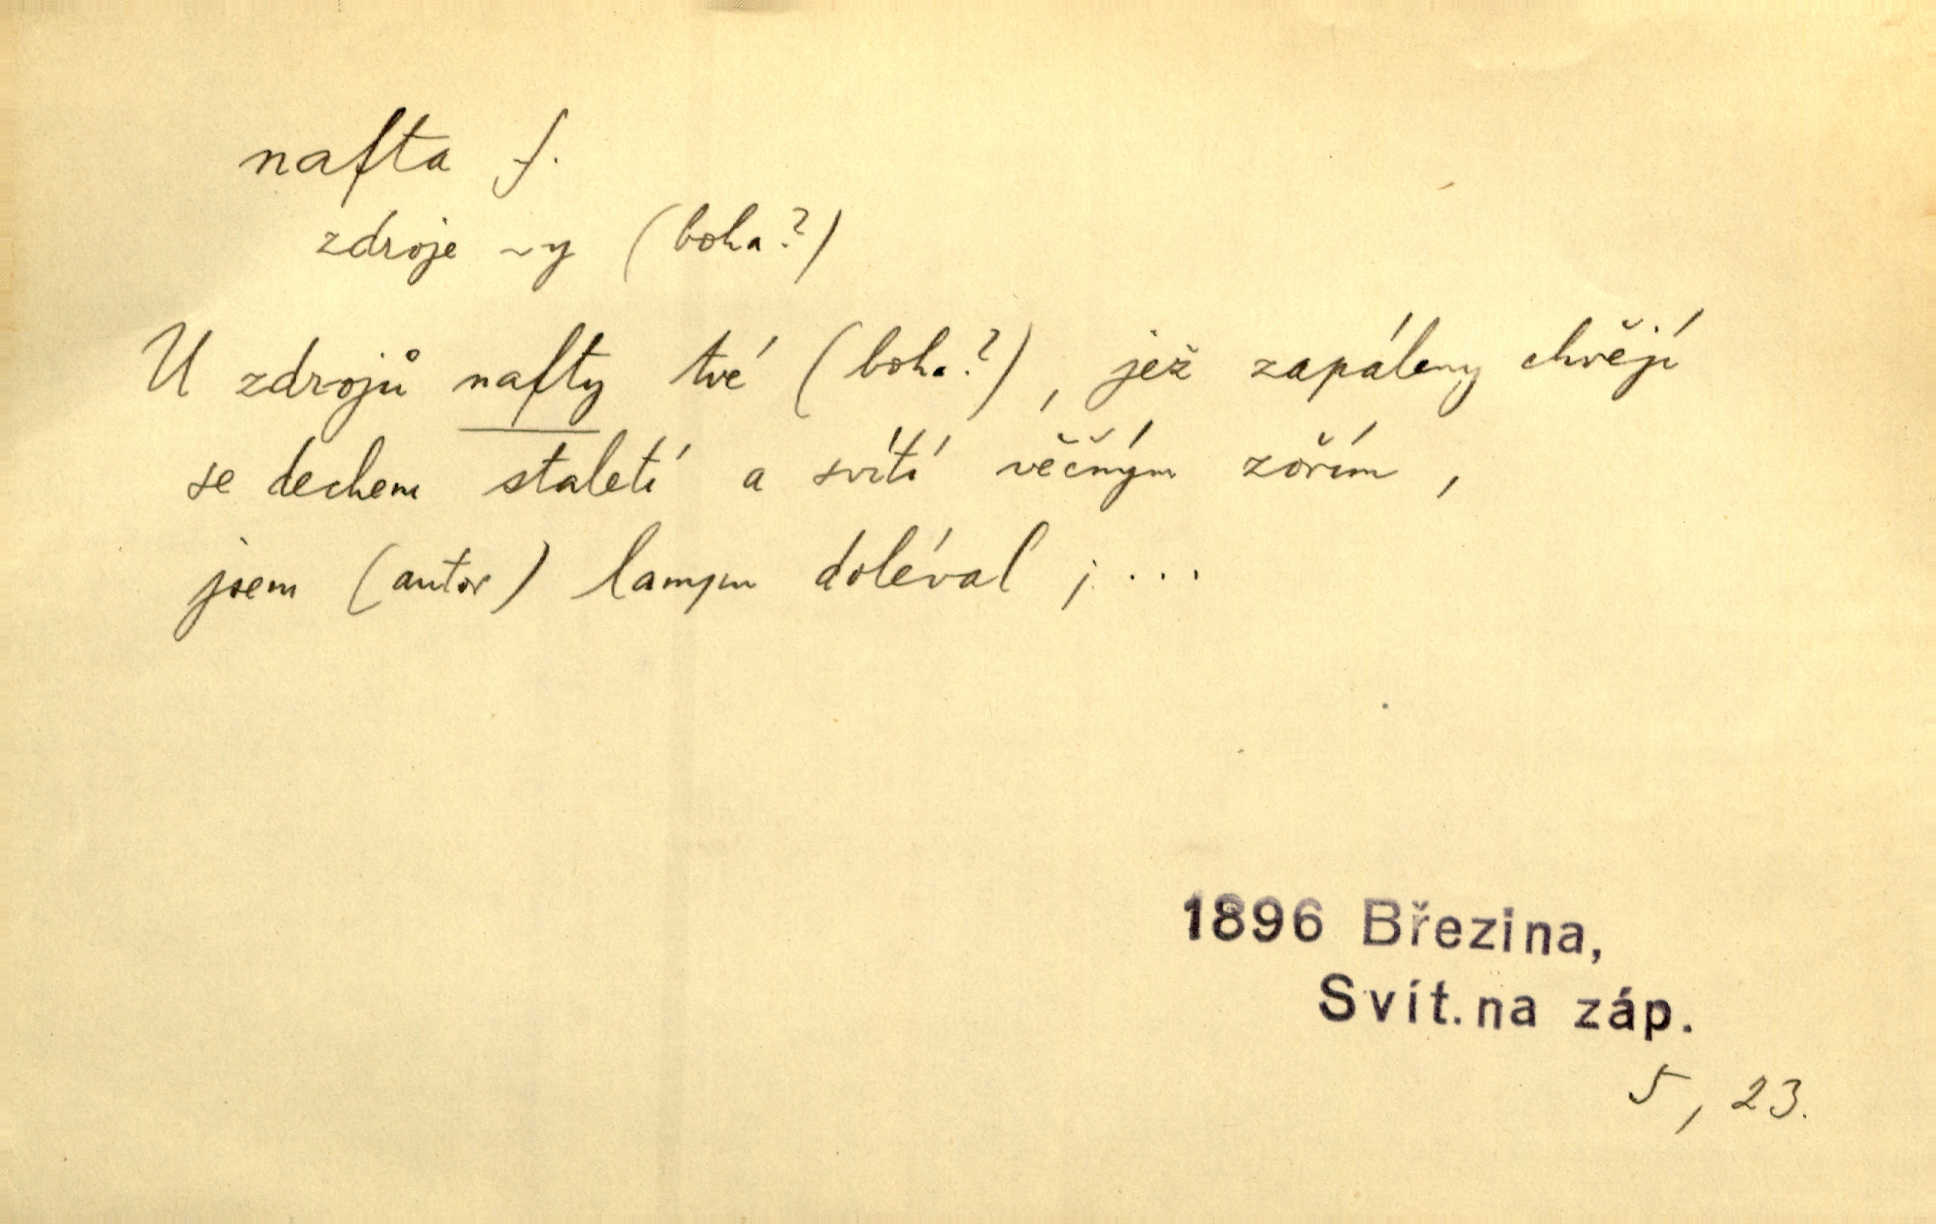 nafta f.
zdroje ~y (boha?)
U zdrojů nafty tvé (boha?), jež zapáleny chvějí
se dechem staletí a svítí věčným zořím,
jsem (autor) lampu doléval; ...
1896 Březina,
Svít. na záp.
5, 23.